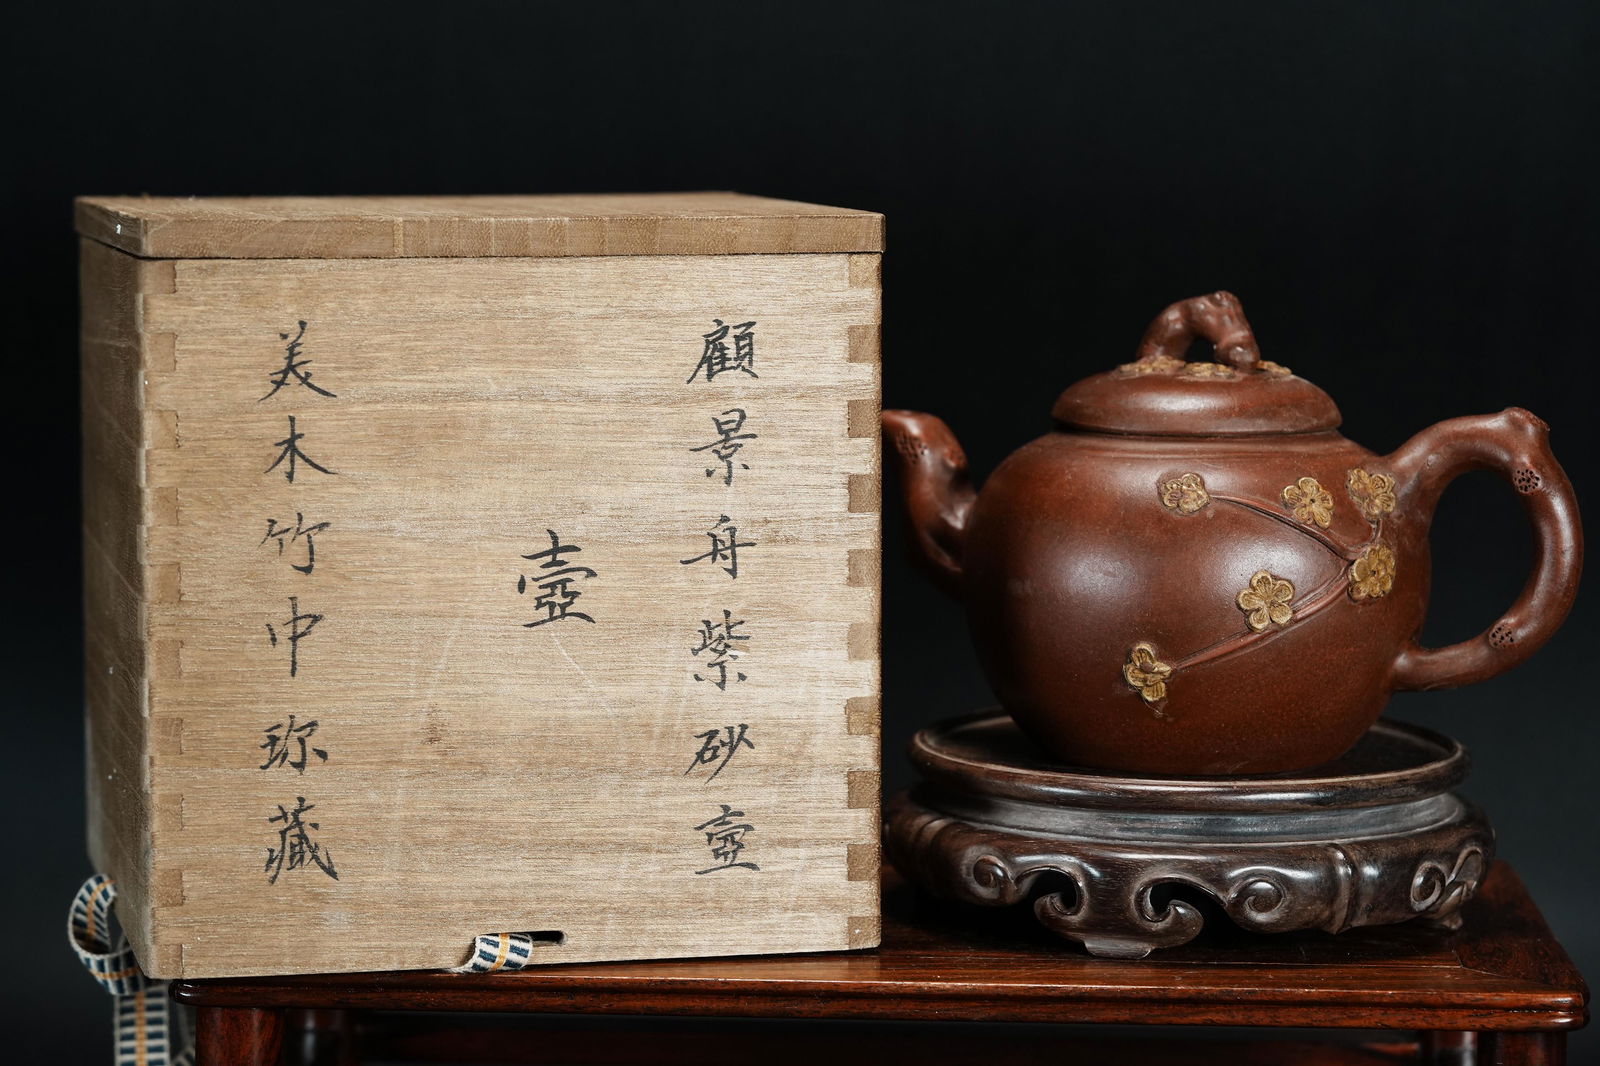 顧景舟紫砂壺
壺
美木竹中珎藏